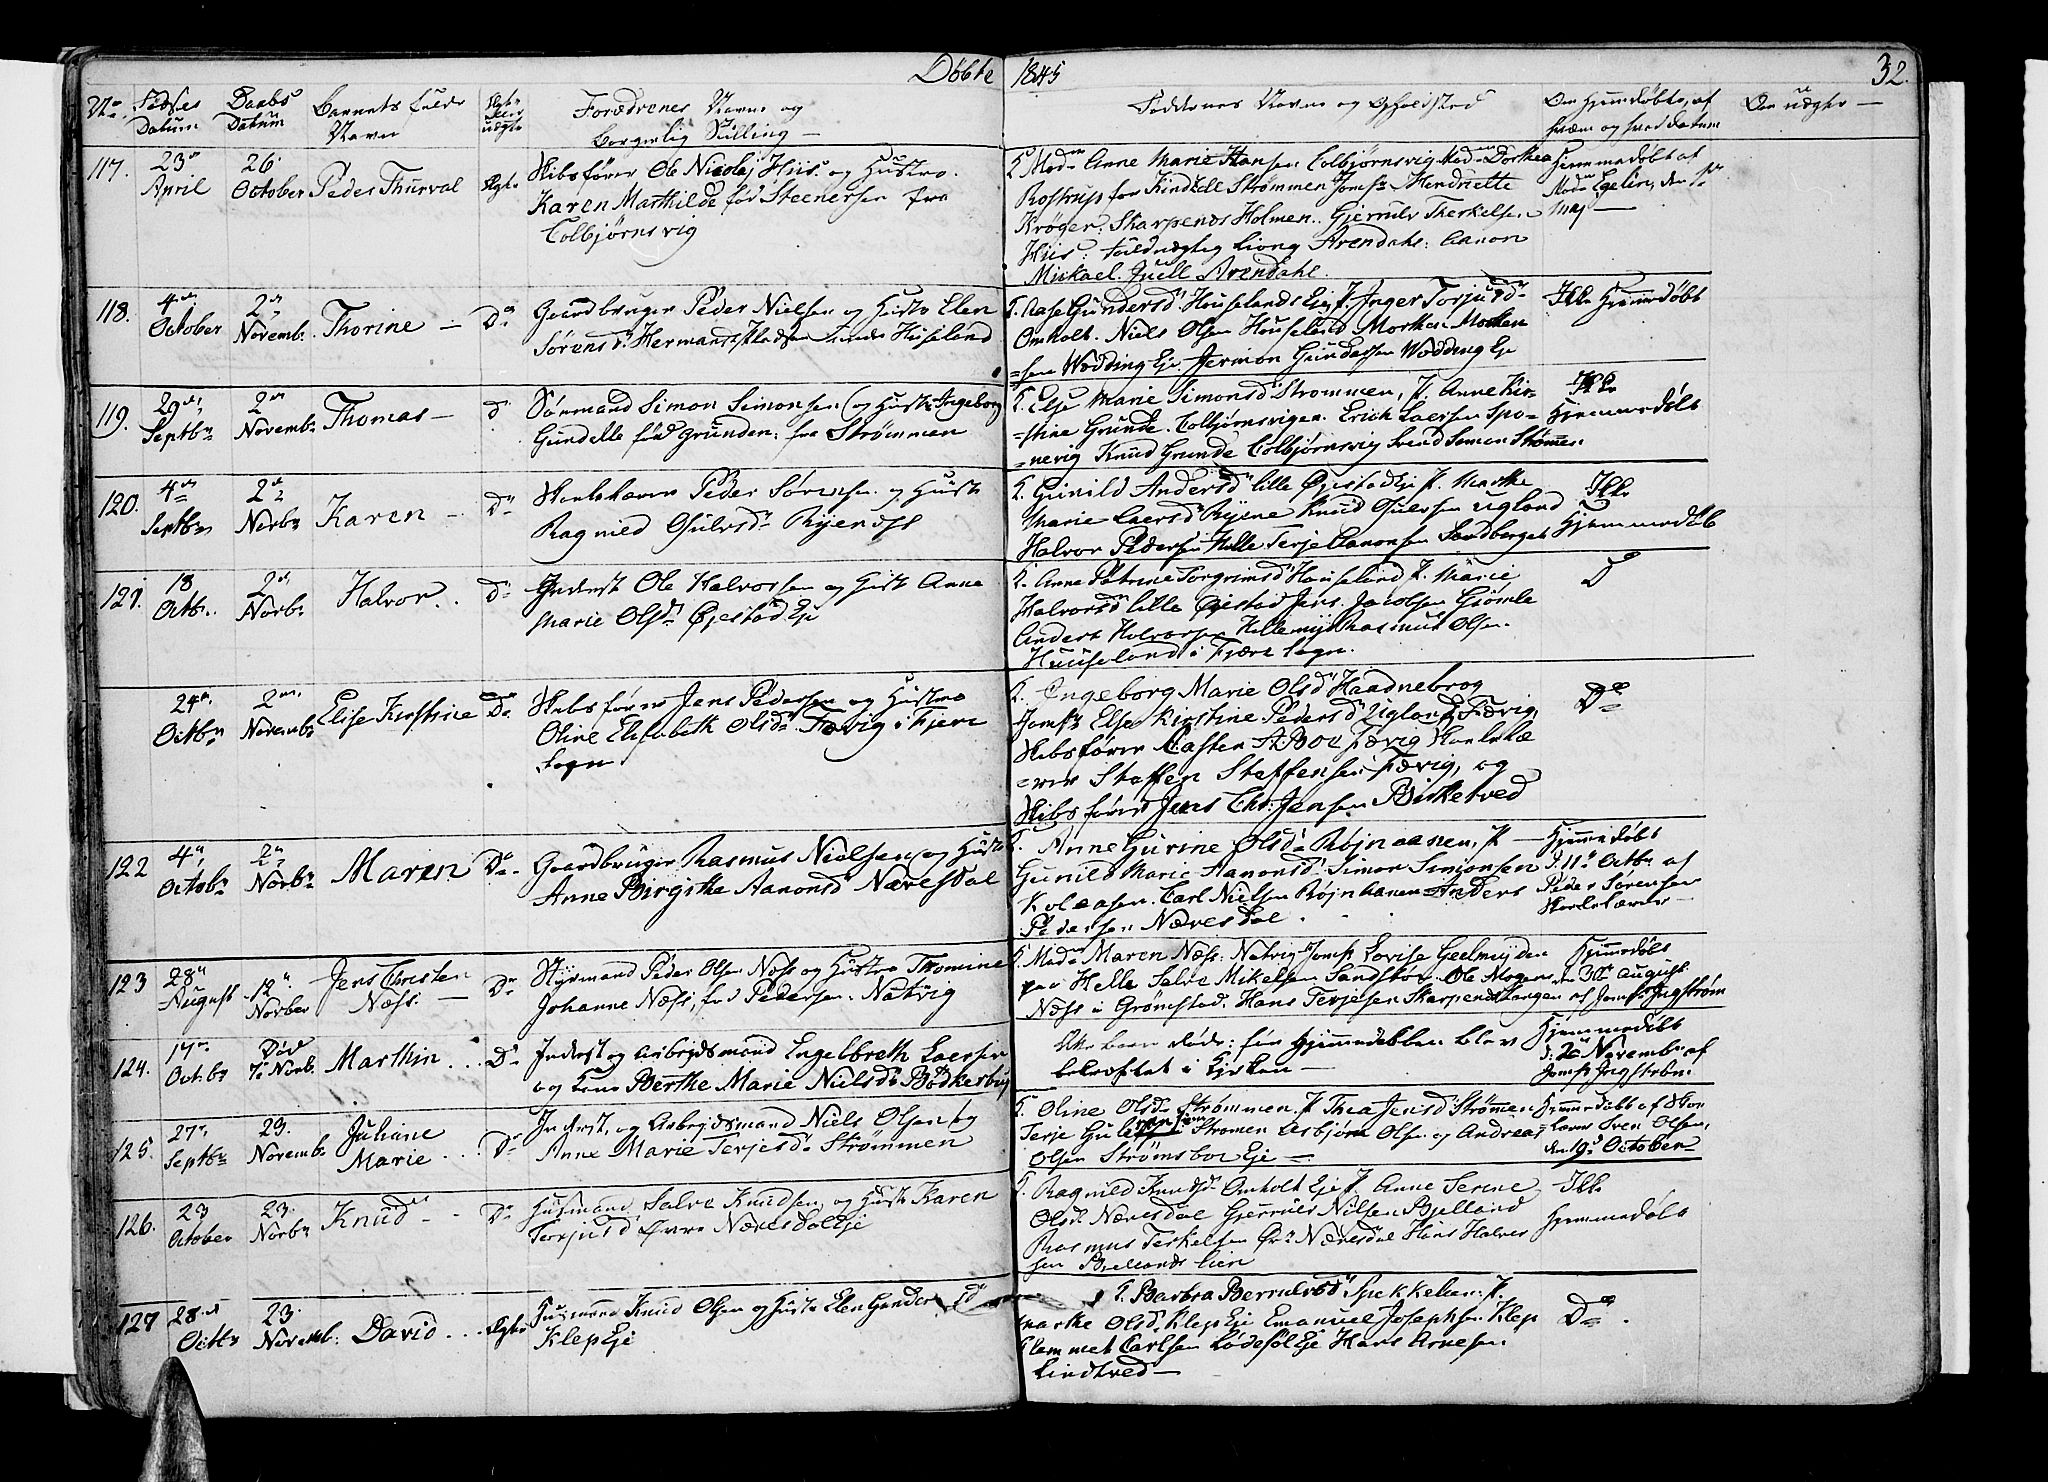 Døbte 1845 32.
No. Fødsels Datum Daabs Datum Barnets fulde Navn Ægte eller uægte Forældrenes Navne og borgerlig Stilling — Faddernes Navne og Opholdsted Om Hjemmedøbt, af hvem og hvad datum Om uægte —
117. 23de April 26. October Peder Thurval Ægte
Skibsfører Ole Nicolaj Hiis og Hustro
Karen Marthilde fød Steenersen fra
Colbjørnsvig
F. Madm Anne Marie Hansen Colbjørnsvig Madm Dorthea
Rostrup fra Strømmen Jomfr Hendriette
Krøger: Skarpenes Holmen. Gjerruls Therkelsen
Hiis: Arendahl: Aanon
Mickael Juell Arendahl.
Hjemmedøbt af
Madm Egelin, den 1ste
Maj —
118. 4de October 2den Novemb. Thorine — Do
Gaardbruger Peder Nielsen og Hustro Elen
Sørensd. Huseland
F. Aase Gundersd Houselands Eie, J. Inger Torjusd
Omholt. Niels Olsen Houseland Morten Morten
=sen Wedding Eje Jermon Gundersen Wedding Eje
Ikke Hjemmedøbt
119. 29de Septbr 2den Novembr Thomas — Do
Sørmand Simon Simonsen og Hustr Ingeborg
Gundelle fød Grunden: fra Strømmen
F. Else Marie Simonsd Strømmen, J. Anne Kir-
=stine Grunde. Colbjørnsvigen. Erich Laersen Spo-
=nevig Knud Grunde Colbjørnsvig Svend Simon Strømen.
Ikke
Hjemmedøbt
120. 4de Septbr 2den Novbr Karen — Do
Skolelærer Peder Sørensen og Hustr
Ragnild Gulvsdr Ryene
F. Gunild Andersd lille Øjestad Eje J. Marthe
Marie Laersd Ryene Knud Gulvsen Ugland
Halvor Pedersen Helle Terje Aanonsen Sandberget
Ikke
Hjemmedøbt
121. 18 Octbr. 2den Novbr Halvor. Do
Inderst Ole Halvorsen og Hustr Anne
Marie Olsdr Øjestad Eje
F. Anne Petrine Torgrimsd Houseland J. Marie
Halvorsd lille Øjestad Jens Jacobsen Gjømle
Anders Halvorsen Hellemyr Rasmus Olsen
Huuseland i Fjære Sogn.
Do
24de Octbr 2den Novembr Elise Kirstine Do
Skibsfører Jens Pedersen og Hustro
Oline Elisabeth Olsdr Fævig i Fjere
Sogn
F. Ingeborg Marie Olsd Haadnebrog
Jomfr Else Kirstine Pedersd Ugland Fævig,
Skibsfører Casten A. Boe Fævig Skolelæ
=rer Steffen Steffensen Fævig, og
Skibsfører Jens Chr: Jensen Birketved
Do
122 4de Octobr 2den Novbr Maren Do
Gaardbruger Rasmus Nielsen og Hustr
Anne Birgitte Aanonsd Næresdal
F. Anne Gurine Olsdr Røjnaanen, J. —
Gunild Marie Aanonsd Simon Simonsen
Kolaasen. Carl Nielsen Røjnaanen Anders
Pedersen Næresdal
Hjemmedøbt
d. 11te Octbr af
Peder Sørensen
Skolelærer —
123 28de August 12te Novber Jens Christen Næss. — Do
Styrmand Peder Olsen Næss og Hustro Thomine
Johanne Næss, fød Pedersen. Natvig
F. Madm Maren Næss: Natvig Jomfr Lovise Geelmuyden
paa Helle Salve Mikelsen Sandstø Ole Mogens
Næss i Grømstad. Hans Terjesen Skarpenes
Hjemmedøbt
den 30te August
af Jomfr Ingstrøm
124. 17de Octobr Død 7de Novb. Marthin . . . Do
Inderst og Arbejdsmand Engelbreth Laersen
og Kone Berthe Marie Nielsdr Bødkerbu
Dette barn døde: før Hjemmedaaben blev
bekræftet i Kirken —
Hjemmedøbt
d. 2den Novembr af
Jomfr Ingstrøm.
125. 27de Septbr 23. Novembr Juliane Marie . . . Do
Inderst, og Arbejdsmand Niels Olsen og
Anne Marie Terjesdr Strømmen
F. Oline Olsdr Strømmen. J. Thea Jensd Strømmen
Terje Strømen Asbjørn Olsen og Andreas
Olsen Strømsboe Eje —
Hjemmedøbt af Skole
=lærer Sven Olsen,
den 19de October
126. 23 October 23. Novbr Knud — Do
Husmand Salve Knudsen og Hustr Karen
Torjusd Øvre Næresdal Eje
F. Ragnild Knudsdr Omholt Eje J. Anne Serine
Olsd. Næresdal Gjerruls Nilsen Bjelland
Rasmus Terkelsen Øvr Næresdal Hans Halvor
sen Bjellands lien
Ikke
Hjemmedøbt
127 28de Octbr 23. Novemb. David . . . Ægte
Husmand Knud Olsen og Hustr Elen Gundersd
Klep Eje
F. Barbra Berrulvsd Spekkelien: J.
Marthe Olsd. Klep Eje Emanuel Josephsen Klep
Clemmet Carlsen Lødesøl Eje Hans Arnesen
Lindtved —
Do.